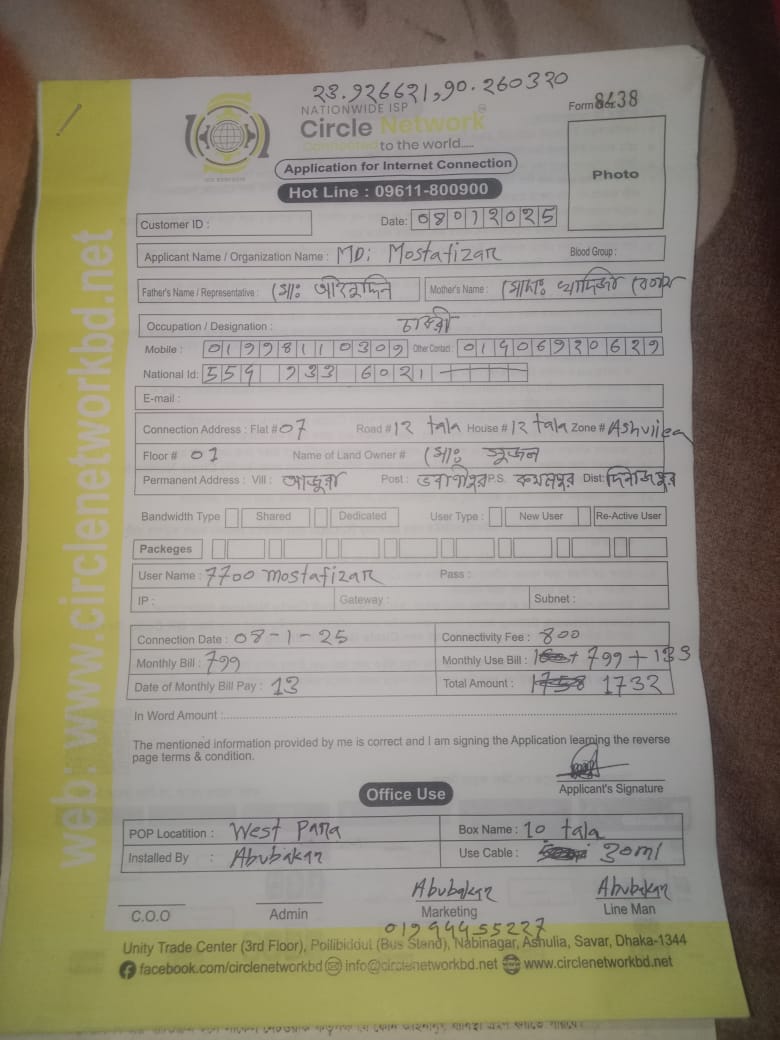 23.926621,90.260320
NATIONWIDE ISP
Circle Network
Connected to the world....
Form 8438
Application for Internet Connection
Hot Line : 09611-800900
Photo
Customer ID :
Date: 08012025
Applicant Name / Organization Name : MD: Mostafizar Blood Group :
Father's Name / Representative : মোঃ Mother's Name : মোছাঃ
Occupation / Designation : চাকরী
Mobile : 01998110309 Other Contact : 01906920629
National Id: 559 933 6021
E-mail :
Connection Address : Flat # 07 Road # 12 tala House # 12 tala Zone #
Floor # 01 Name of Land Owner # মোঃ সুজন
Permanent Address : Vill : Post : ভবানীপুর P.S. Dist: দিনাজপুর
Bandwidth Type Shared Dedicated User Type : New User Re-Active User
Packeges
User Name : 7700 mostafizar Pass :
IP : Gateway : Subnet :
Connection Date : 08-1-25 Connectivity Fee : 800
Monthly Bill : 799 Monthly Use Bill : + 799 + 133
Date of Monthly Bill Pay : 13 Total Amount : 1732
In Word Amount :
The mentioned information provided by me is correct and I am signing the Application learning the reverse
page terms & condition.
Applicant's Signature
Office Use
POP Locatition : West Para Box Name : 10 tala
Installed By : Abubakar Use Cable : 30ml
Abubakar Abubakar
C.O.O Admin Marketing Line Man
Unity Trade Center (3rd Floor), Pollibiddut (Bus Stand), Nabinagar, Ashulia, Savar, Dhaka-1344
facebook.com/circlenetworkbd info@circlenetworkbd.net www.circlenetworkbd.net
web: www.circlenetworkbd.net